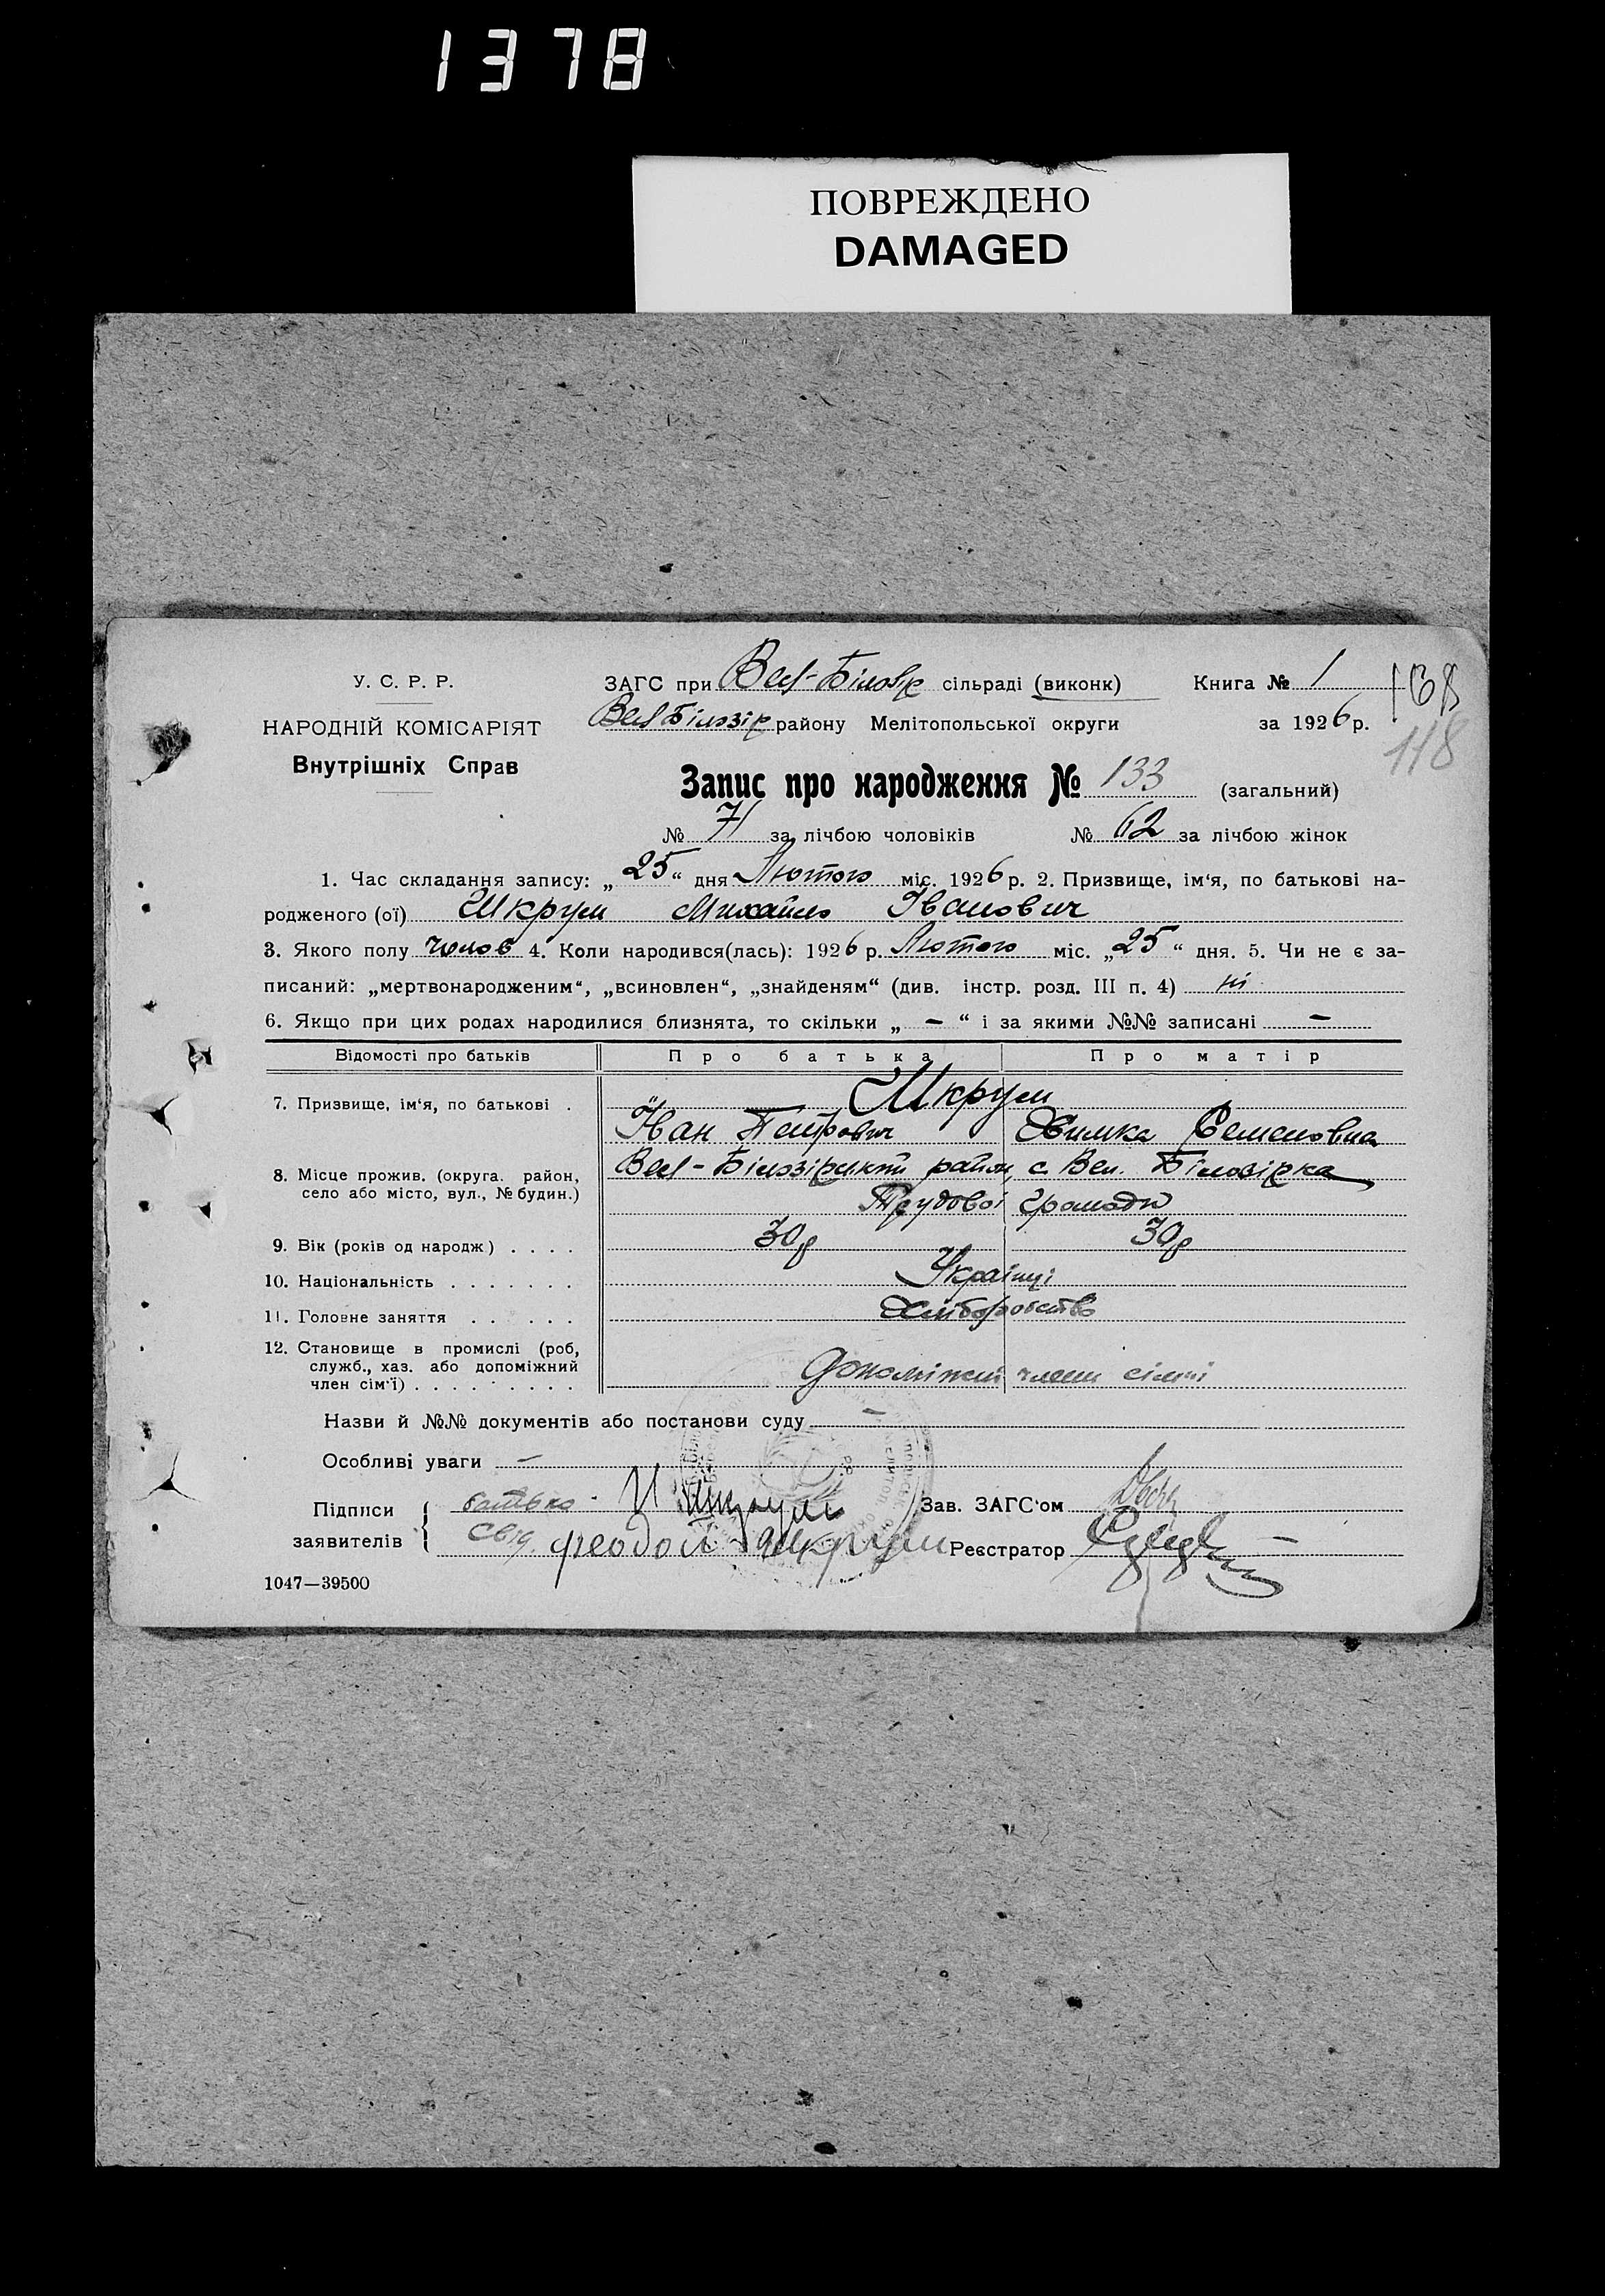 1378
ПОВРЕЖДЕНО
DAMAGED
У. С. Р. Р.
НАРОДНІЙ КОМІСАРІЯТ
Внутрішніх Справ
ЗАГС при Вел-Білозір сільраді (виконк)
Вел Білозір району Мелітопольської округи
Книга № 1
за 1926 р.
118
Запис про народження № 133 (загальний)
№ 71 за лічбою чоловіків № 62 за лічбою жінок
1. Час складання запису: „25“ дня Лютого міс. 1926 р. 2. Призвище, ім‘я, по батькові на-
родженого (ої) Шкрум Михайло Іванович
3. Якого полу чолов 4. Коли народився(лась): 1926 р. Лютого міс. „25“ дня. 5. Чи не є за-
писаний: „мертвонародженим“, „всиновлен“, „знайденям“ (див. інстр. розд. III п. 4) ні
6. Якщо при цих родах народилися близнята, то скільки „ — “ і за якими №№ записані —
Відомості про батьків Про батька Про матір
7. Призвище, ім‘я, по батькові . Шкрум
Іван Петрович Химка Семеновна
8. Місце прожив. (округа. район, село або місто, вул., № будин.) Вел-Білозірський район, с. Вел. Білозірка
Трудової громади
9. Вік (років од народж) . . . . 30р 30р
10. Національність . . . . . . . Українці
11. Головне заняття . . . . . . Хліборобство
12. Становище в промислі (роб, служб., хаз. або допоміжний член сім‘ї) . . . . . . . . . допоміжні члени сімї
Назви й №№ документів або постанови суду —
Особливі уваги —
Підписи заявителів { батько. И Шкрум
Свід. феодосі шкрум
Зав. ЗАГС‘ом
Реєстратор
1047—39500